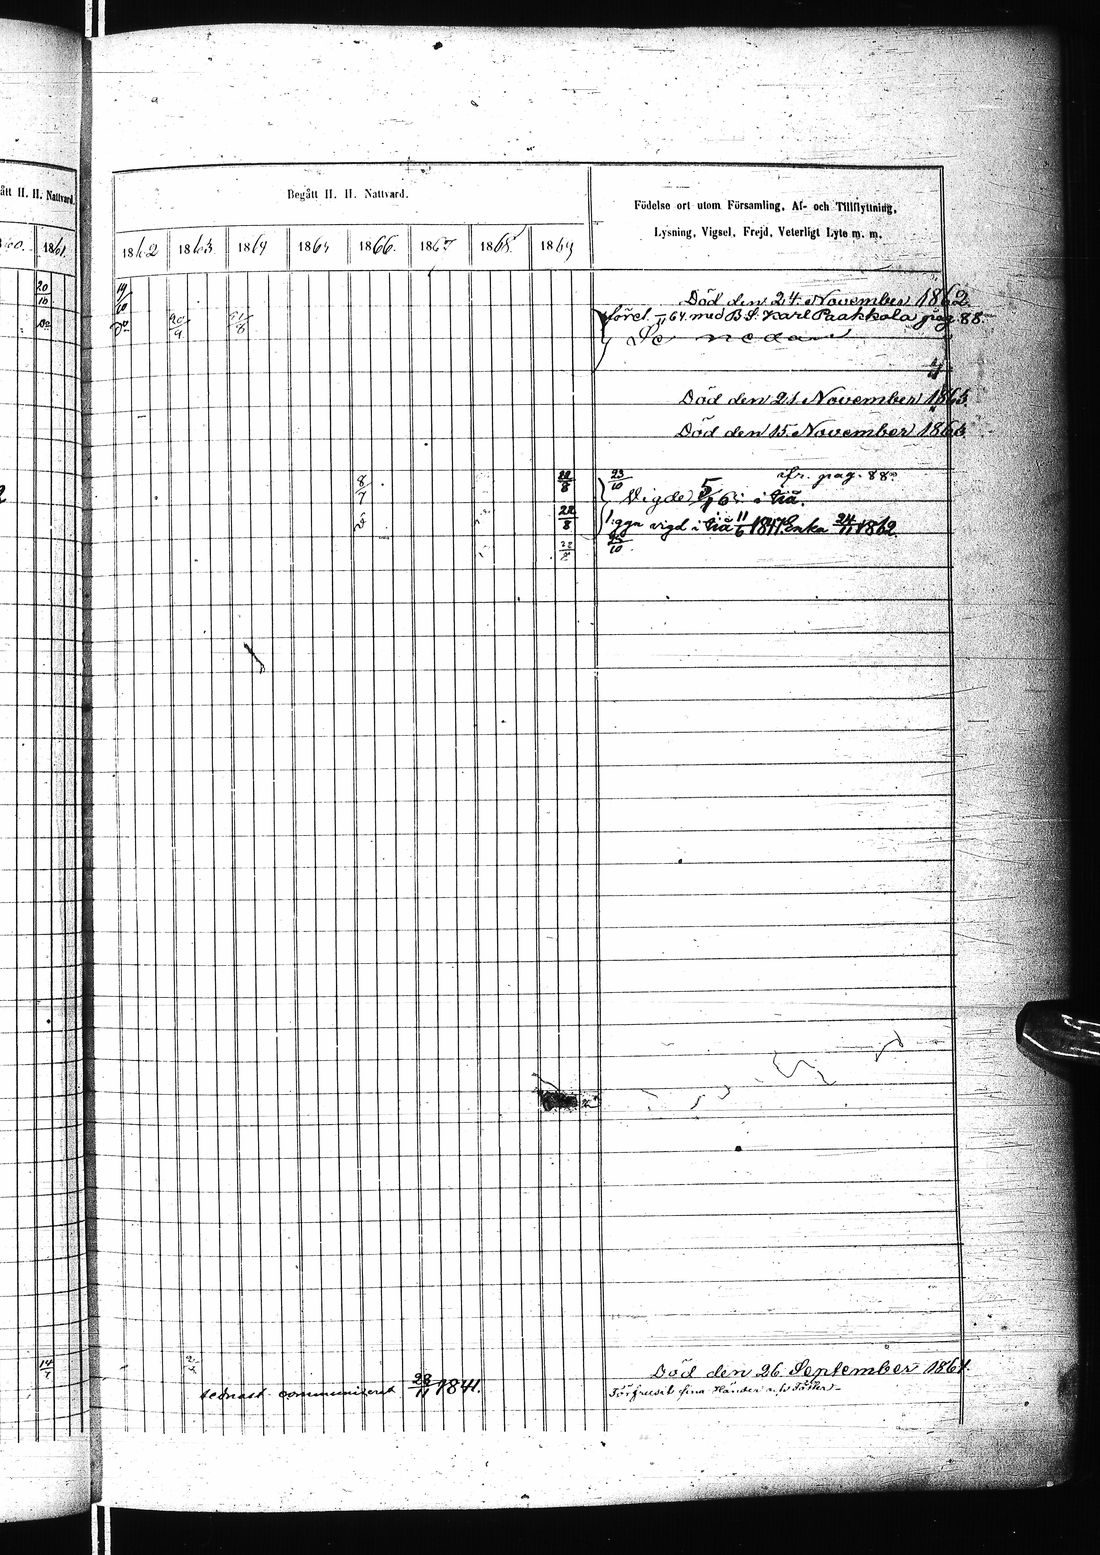 ått H. H. Nattvard.
Begått H. H. Nattvard.
Födelse ort utom Församling, Af- och Tillflyttning,
Lysning, Vigsel, Frejd, Veterligt Lyte m. m.
1861.
1862 1863 1864 1865 1866. 1867 1868 1869
20/10 19/10
Död den 24. November 1862.
Do Do 20/9 21/8
med B. S. Karl Paakkola pag. 88.
Se nedan
Död den 21. November 1863.
Död den 15. November 1863
8/7 22/8 23/10 ifr. pag. 88.
Vigde
22/8 vigd i 11/6 1847. Enka 24/11 1862.
22/8 23/10
14/7
Död den 26. September 1861.
sednast communiserat 28/11 1841.
sina Händer